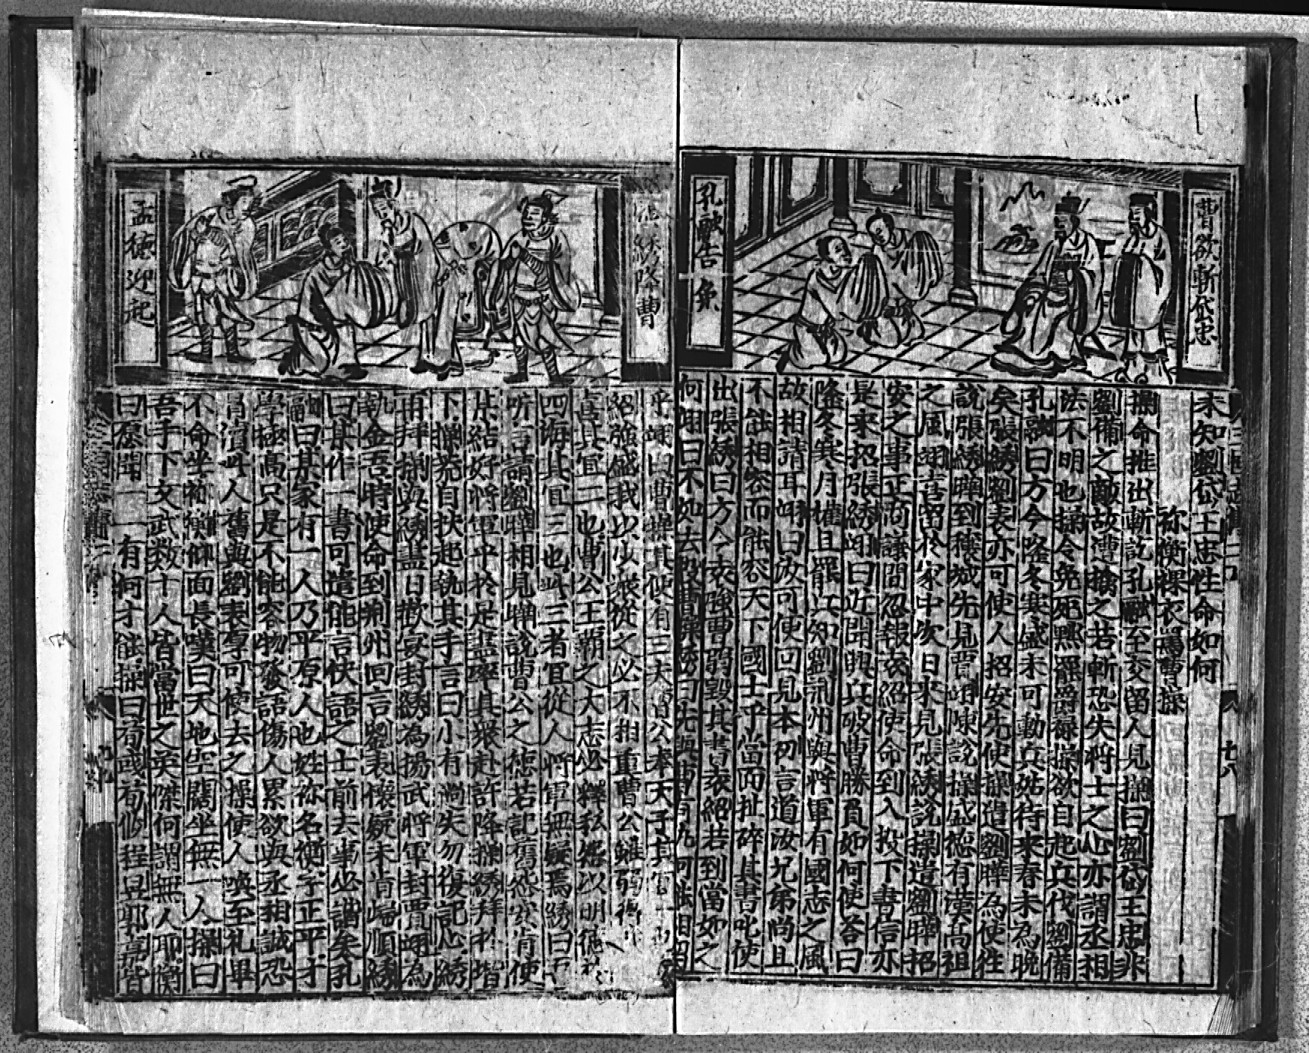 曹欲斬岱忠
孔融告免
未知劉岱王忠性命如何
祢衡裸衣罵曹操
操命推出斬訖孔融至交留人見操曰劉岱王忠非
劉備之敵故遭擒之若斬恐失將士之心亦謂丞相
法不明也操令免死黜罷爵祿操欲自起兵伐劉備
孔融曰方今隆冬寒盛未可動兵姑待來春未為晚
矣張綉劉表亦可使人招安先使操遣劉曄為使往
說張綉曄到穰城先見賈詡陳說操盛德有漢高祖
之風詡喜留於家中次日來見張綉說操遣劉曄招
安之事正商議間忽報袁紹使命到入投下書信亦
是來招張綉詡曰近聞興兵破曹勝負如何使答曰
隆冬寒月權且罷兵知劉荊州與將軍有國志之風
故相請耳詡曰汝可便回見本初言道汝兄弟尚且
不能相容而能容天下國士乎當面扯碎其書叱使
出張綉曰方今袁強曹弱毀其書袁紹若到當如之
何詡曰不如去投曹操綉曰先與曹有九何能相容
張綉降曹
孟德迎起
乎詡曰曹操其便有三夫曹公奉天子其宜一也
紹強盛我以少眾從之必不相重曹公雖弱得
喜其宜二也曹公王霸之大志必釋私怨以明德
四海其宜三也此三者宜從人將軍無疑焉綉曰
听言請劉曄相見曄說曹公之德若記舊怨安肯使
某結好將軍乎於是盡率其眾赴許降操綉拜於階
下操慌自扶起執其手言曰小有過失勿復記心綉
再拜操與綉盡日歡宴封綉為揚武將軍封賈詡為
執金吾時使命到荊州回言劉表懷疑未肯歸順綉
曰某作一書可遣能言快語之士前去事必諧矣孔
融曰某家有一人乃平原人也姓祢名衡字正平才
學極高只是不能容物發語傷人累欲與丞相誠恐
冒瀆此人舊與劉表厚可使去之操使人喚至礼畢
不命坐祢衡仰面長嘆曰天地空闊坐無一人操曰
吾手下文武数十人皆當世之英傑何謂無人耶衡
曰愿聞一一有何才能操曰荀彧荀攸程昱郭嘉皆